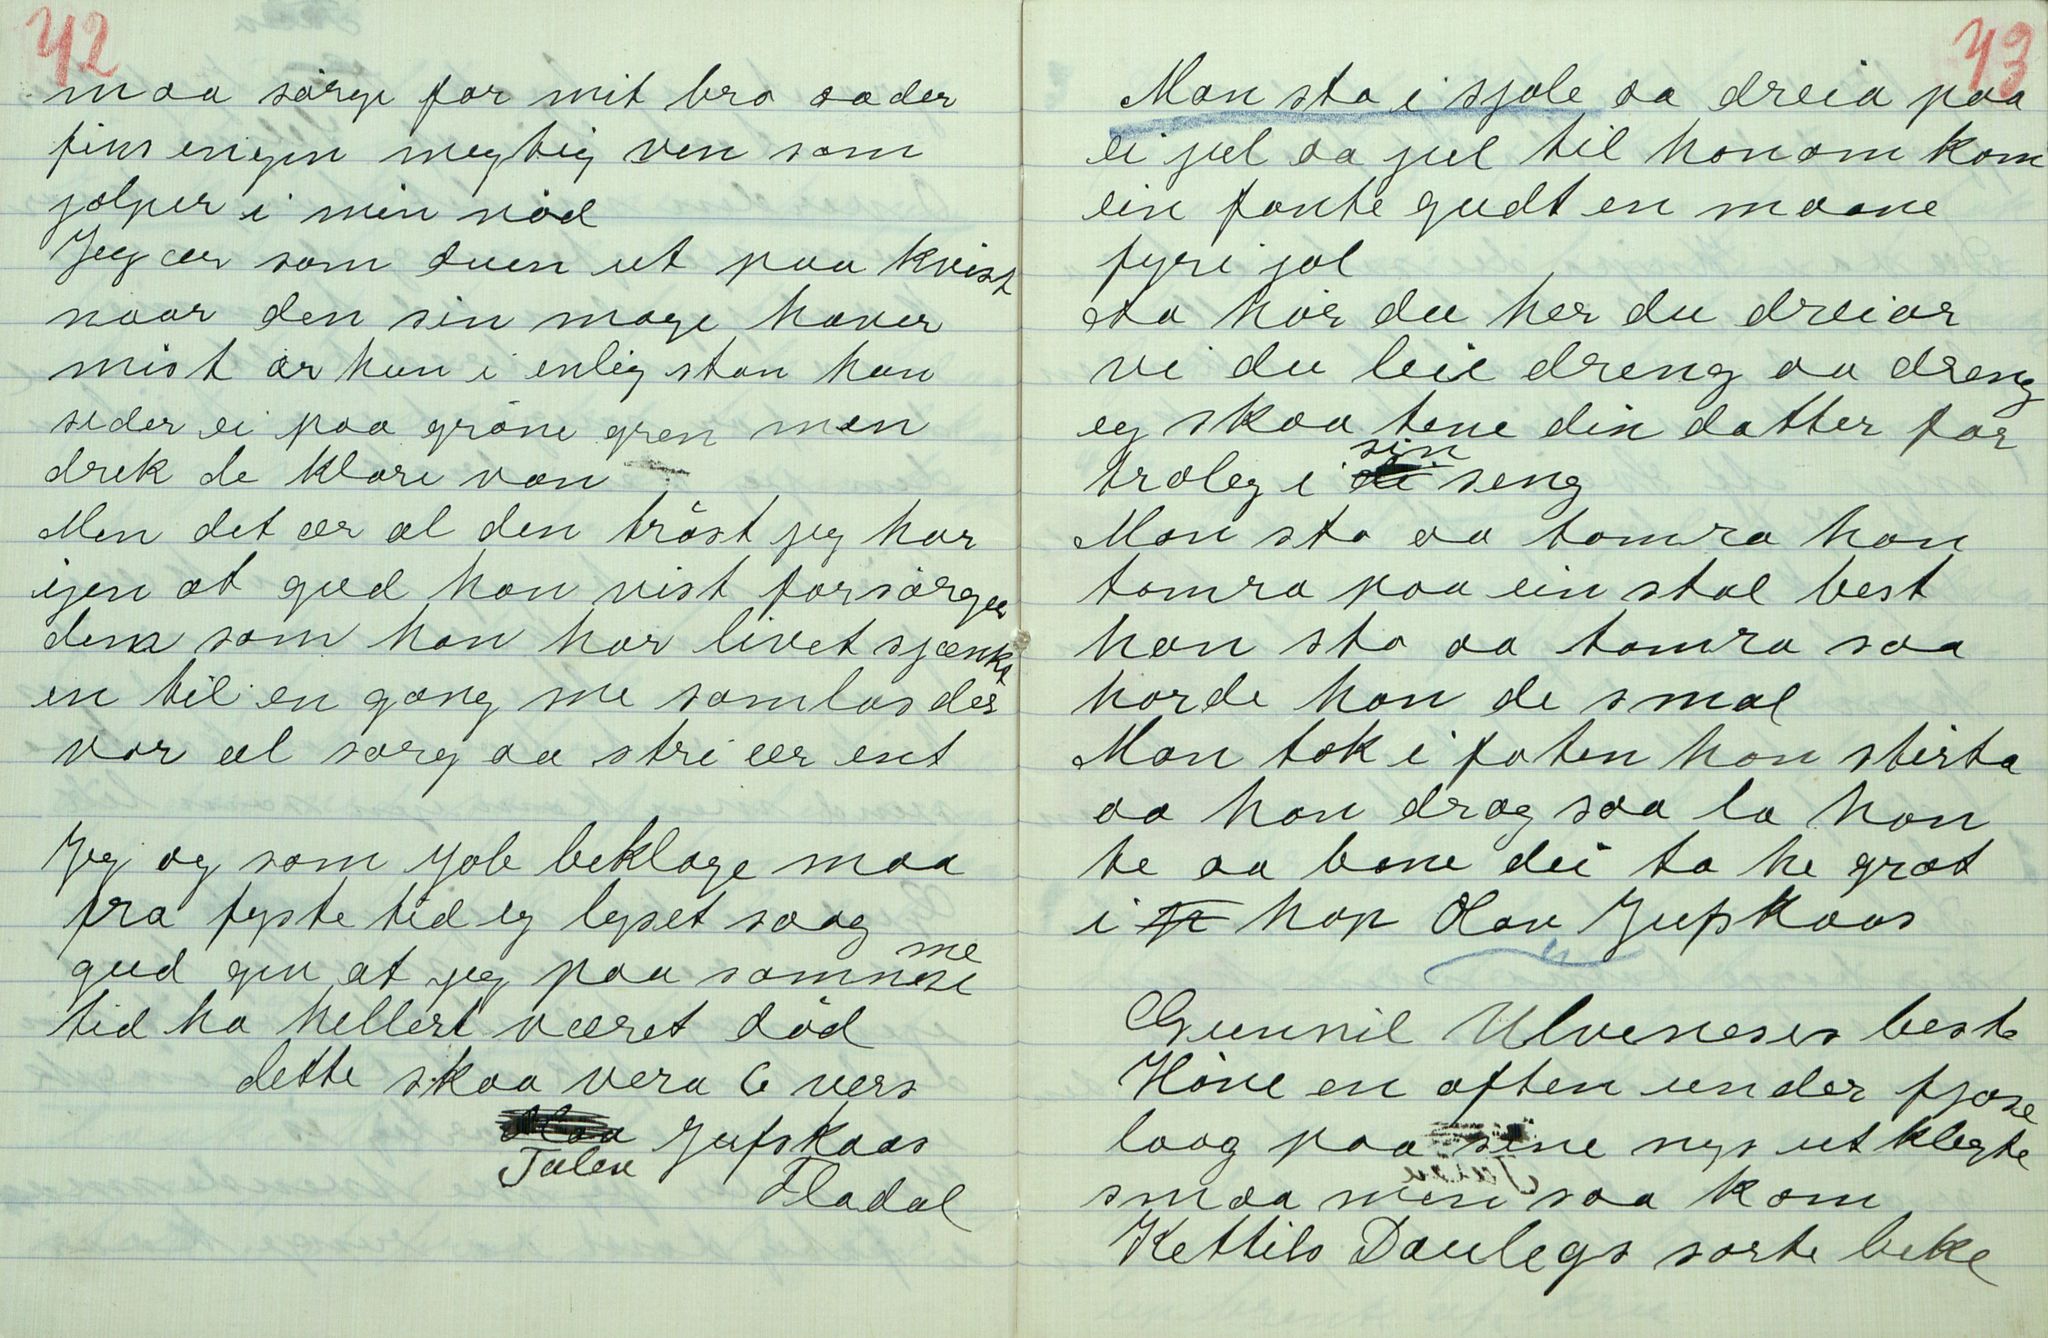 42
maa sørge for mit brø oader
fins engen megtig ven som
jølper i min nød
Jeg ær som duen ut paa kvist
naar den sin mage haver
mist ær hun i enlig stan han
seder ei paa grøne gren men
drek de klare van
Men det ær al den trøst jeg har
igen at gud han vist forsørger
dem som han har livet sjænkt
en til en gang me samlas der
vor al sorg aa stri ær ent
Jeg og som Job beklage maa
fra fyste tid eg lyset saag
gud gev at jeg paa samme
tid ha hellert været død
dette skaa vera 6 vers
Jufskaas
Talen
Fladal
43
Man sta i sjole aa dreia paa
ei jul aa jul til honom kom
ein fante gudt en maane
fyri jol
Aa hør du her du dreiar
vi du leie dreng aa dreng
eg skaa tene din datter for
troleg i sin seng
Man sta aa tomra han
tomra paa ein stal best
han sta aa tomra saa
horde han de smal
Man tok i foten han stirta
aa han drog saa la han
te aa bane dei ta he grat
i hop Olav Jufskaas
Gunnil Ulveneses beste
Høne en aften under fjøse
laag paa sine nys ut klegte
smaa men saa kom
Kettils Daulegs sorte beke